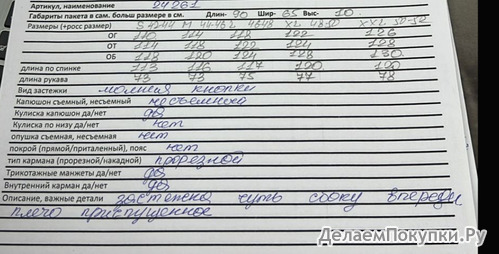 Артикул, наименование 24261
Габариты пакета в сам. больш размере в см. Длин- 90 Шир- 65 Выс- 10
Размеры (+росс размер) S 42-44 M 44-46 L 46-48 XL 48-50 XXL 50-52
ОГ 110 114 118 122 126
ОТ 114 118 122 124 128
ОБ 118 120 124 128 130
длина по спинке 113 116 117 120 120
длина рукава 73 73 75 77 78
Вид застежки молния кнопки
Капюшон съемный, несъемный несъемный
Кулиска капюшон да/нет да
Кулиска по низу да/нет нет
опушка съемная, несъемная нет
покрой (прямой/приталенный), пояс нет
тип кармана (прорезной/накадной) прорезной
Трикотажные манжеты да/нет да
Внутренний карман да/нет да
Описание, важные детали застежка чуть сбоку впереди
плечо приспущенное
ДелаемПокупки.Ру